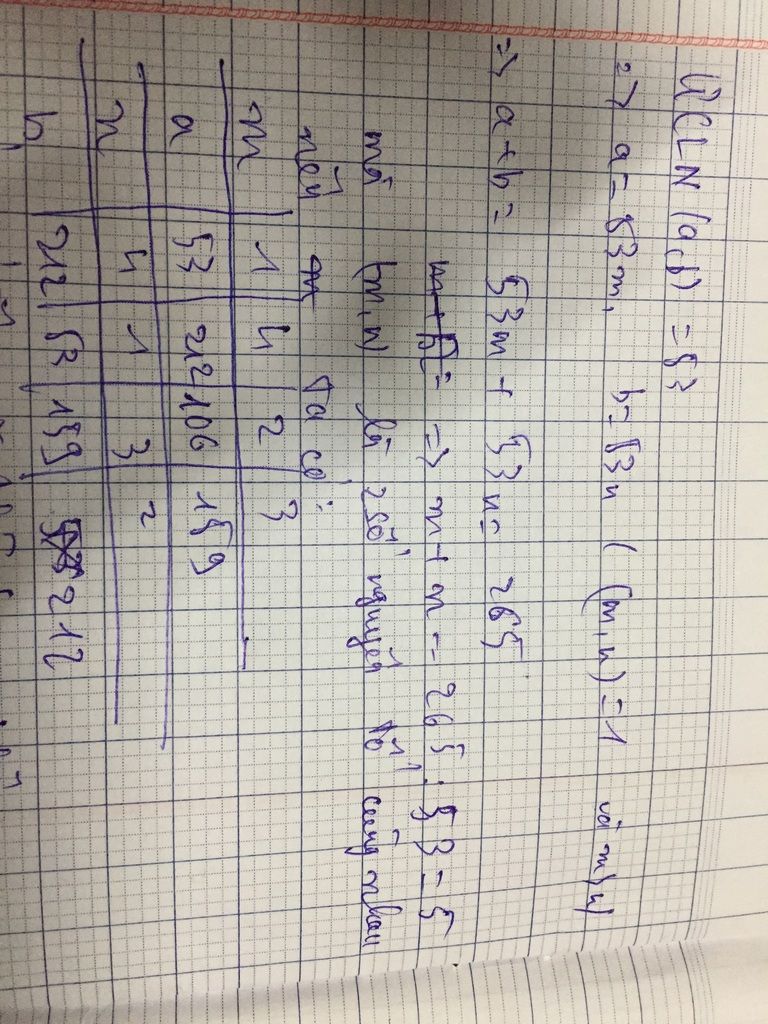 ƯCLN (a,b) = 53
=> a = 53m, b = 53n ( (m,n) = 1 và m>n)
=> a + b = 53m + 53n = 265
=> m + n = 265 : 53 = 5
mà (m,n) là 2 số nguyên tố cùng nhau
nên ta có:
m 1 4 2 3
a 53 212 106 159
n 4 1 3 2
b 212 53 159 212